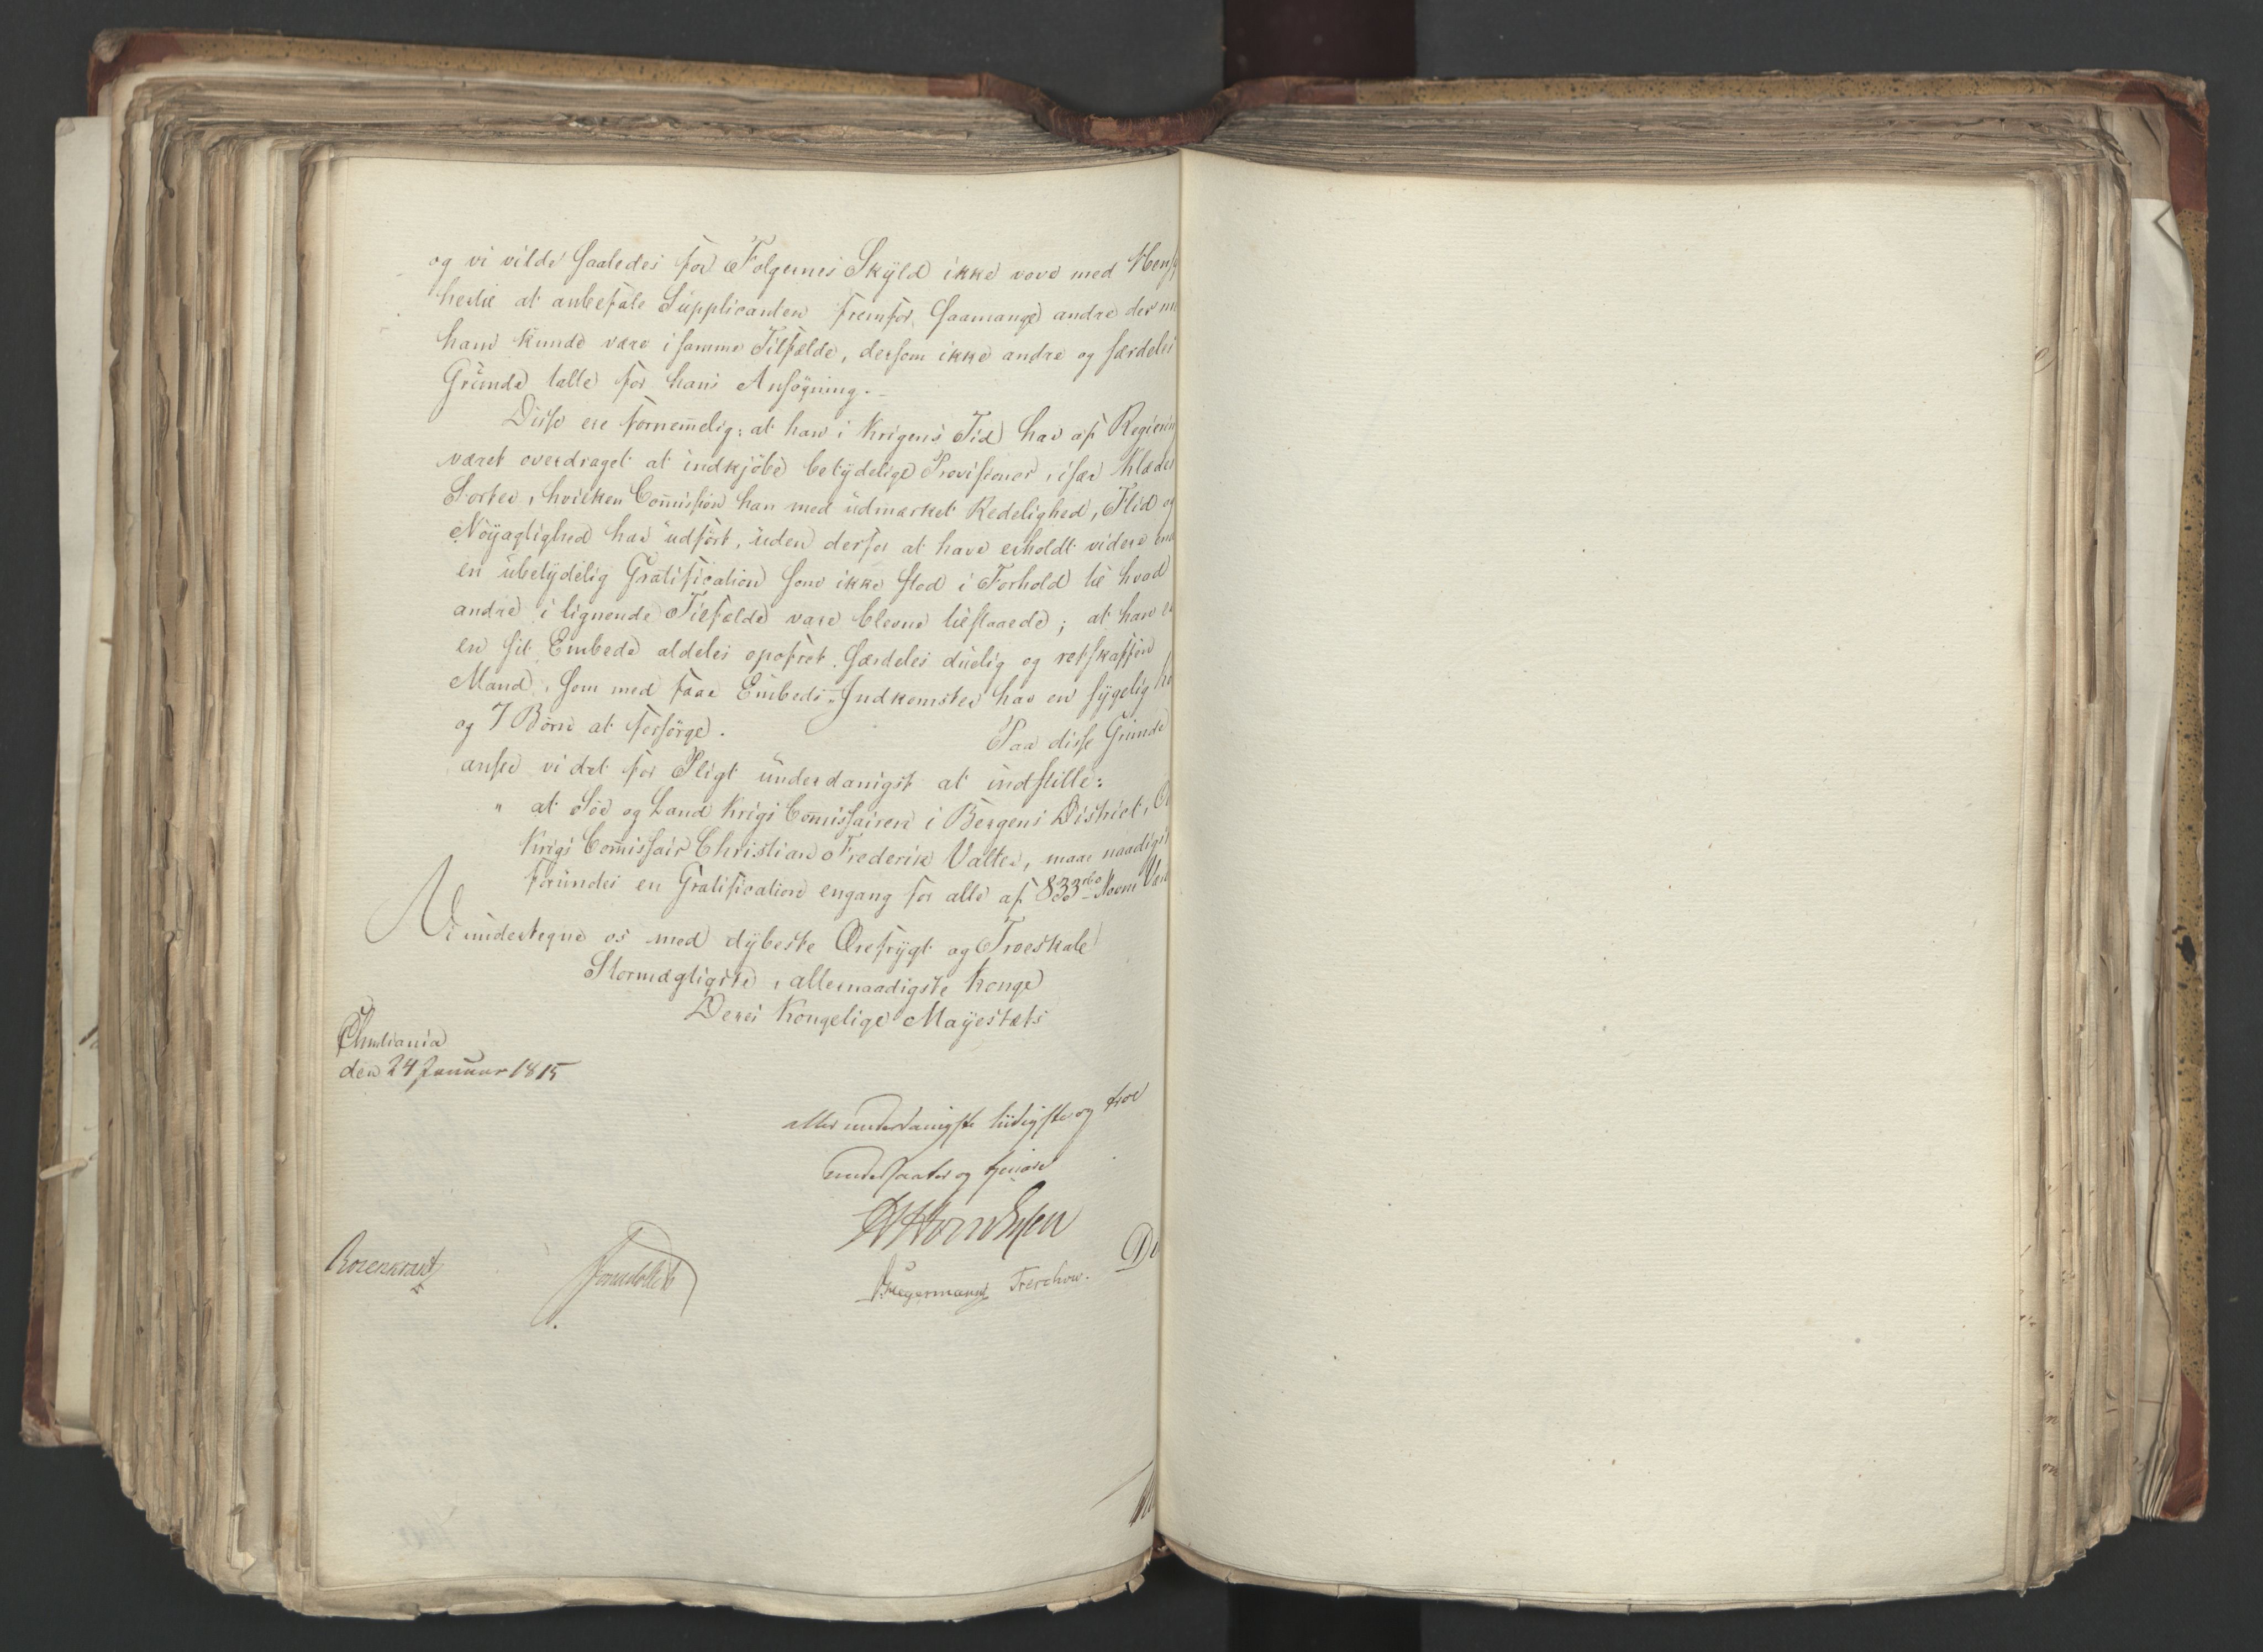 og vi vilde saaledes for Følgernes Skyld ikke vove med Hensy
hertil at anbefale Supplicanten fremfor saamange andre der
han kunde være i samme Tilfælde, dersom ikke andre og særdeles
Grunde talte for hans Ansøgning.
Disse ere fornemmelig: at han i Krigens Tid har af Regierin
været overdraget at indkjöbe betydelige Provisioner, især Klæde
Sorter, hvilken Commission han med udmærket Redelighed, Flid og
Nöyagtighed har udfört, uden derfor at have erholdt videre end
en ubetydelig Gratification som ikke stod i Forhold til hvad
andre i lignende Tilfælde vare blevne tilstaaede; at han er
en sit Embede aldeles opofret, særdeles duelig og retskaffen
Mand, som med faae Embeds-Indkomster har en sygelig
og 7 Børn at forsörge. Paa disse Grunde
ansee vi det for Pligt underdanigst at indstille:
" at Söe og Land Krigs Commissairen i Bergens District,
Krigs Commissair Christian Frederik Valter, maae naadigst
forundes en Gratification engang for alle af 833 rbd Navne Væ
Vi undertegne os med dybeste Ærefrygt og Troeskab
Stormægtigste, allernaadigste Konge
Deres Kongelige Mayestæts
Christiania
den 24 Januar 1815
allerunderdanigste lüdigste og troe
undersaatter og tjenere
Rosenkrantz
Sommerhielm
Hegermann Treschow.